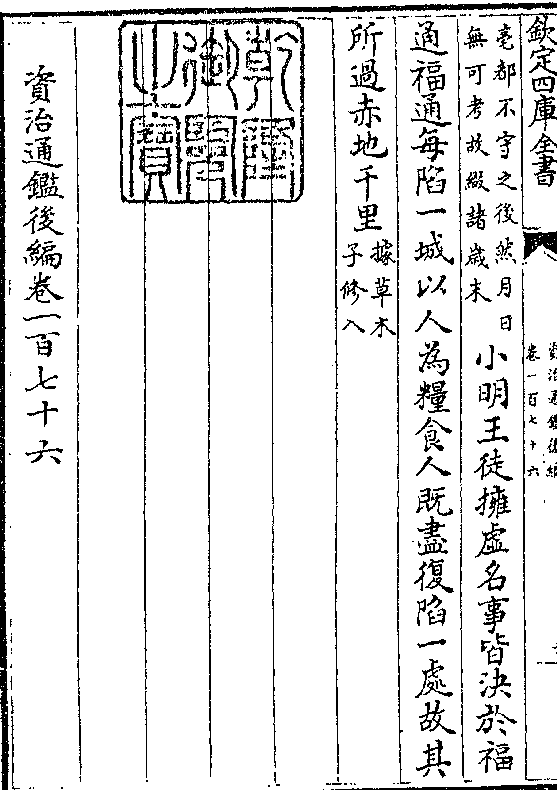 欽定四庫全書
資治通鑑後編
卷一百七十六
亳都不守之後然月日
無可考故綴諸歲末
小明王徒擁虛名事皆決於福
通福通每陷一城以人為糧食人既盡復陷一處故其
所過赤地千里
據草木
子修入
乾隆御覽之寶
資治通鑑後編卷一百七十六